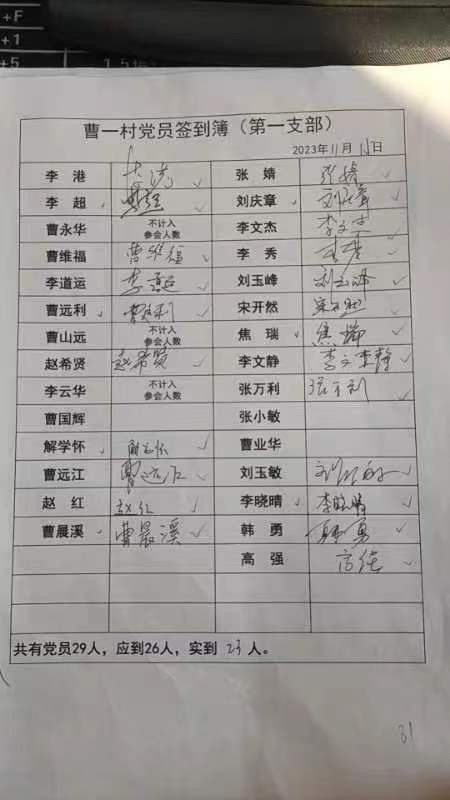 +F
+1
+5
曹一村党员签到簿（第一支部）
2023年11月 日
李 港 张 婧 张婧
李 超 刘庆章 刘庆章
曹永华 不计入参会人数 李文杰 李文杰
曹维福 曹维福 李 秀
李道运 李道运 刘玉峰 刘玉峰
曹远利 曹远利 宋开然 宋开然
曹山远 不计入参会人数 焦 瑞 焦瑞
赵希贤 赵希贤 李文静 李文静
李云华 不计入参会人数 张万利 张万利
曹国辉 张小敏
解学怀 曹业华
曹远江 曹远江 刘玉敏
赵 红 赵红 李晓晴 李晓晴
曹晨溪 曹晨溪 韩 勇 韩勇
高 强
共有党员29人，应到26人，实到 23 人。
31